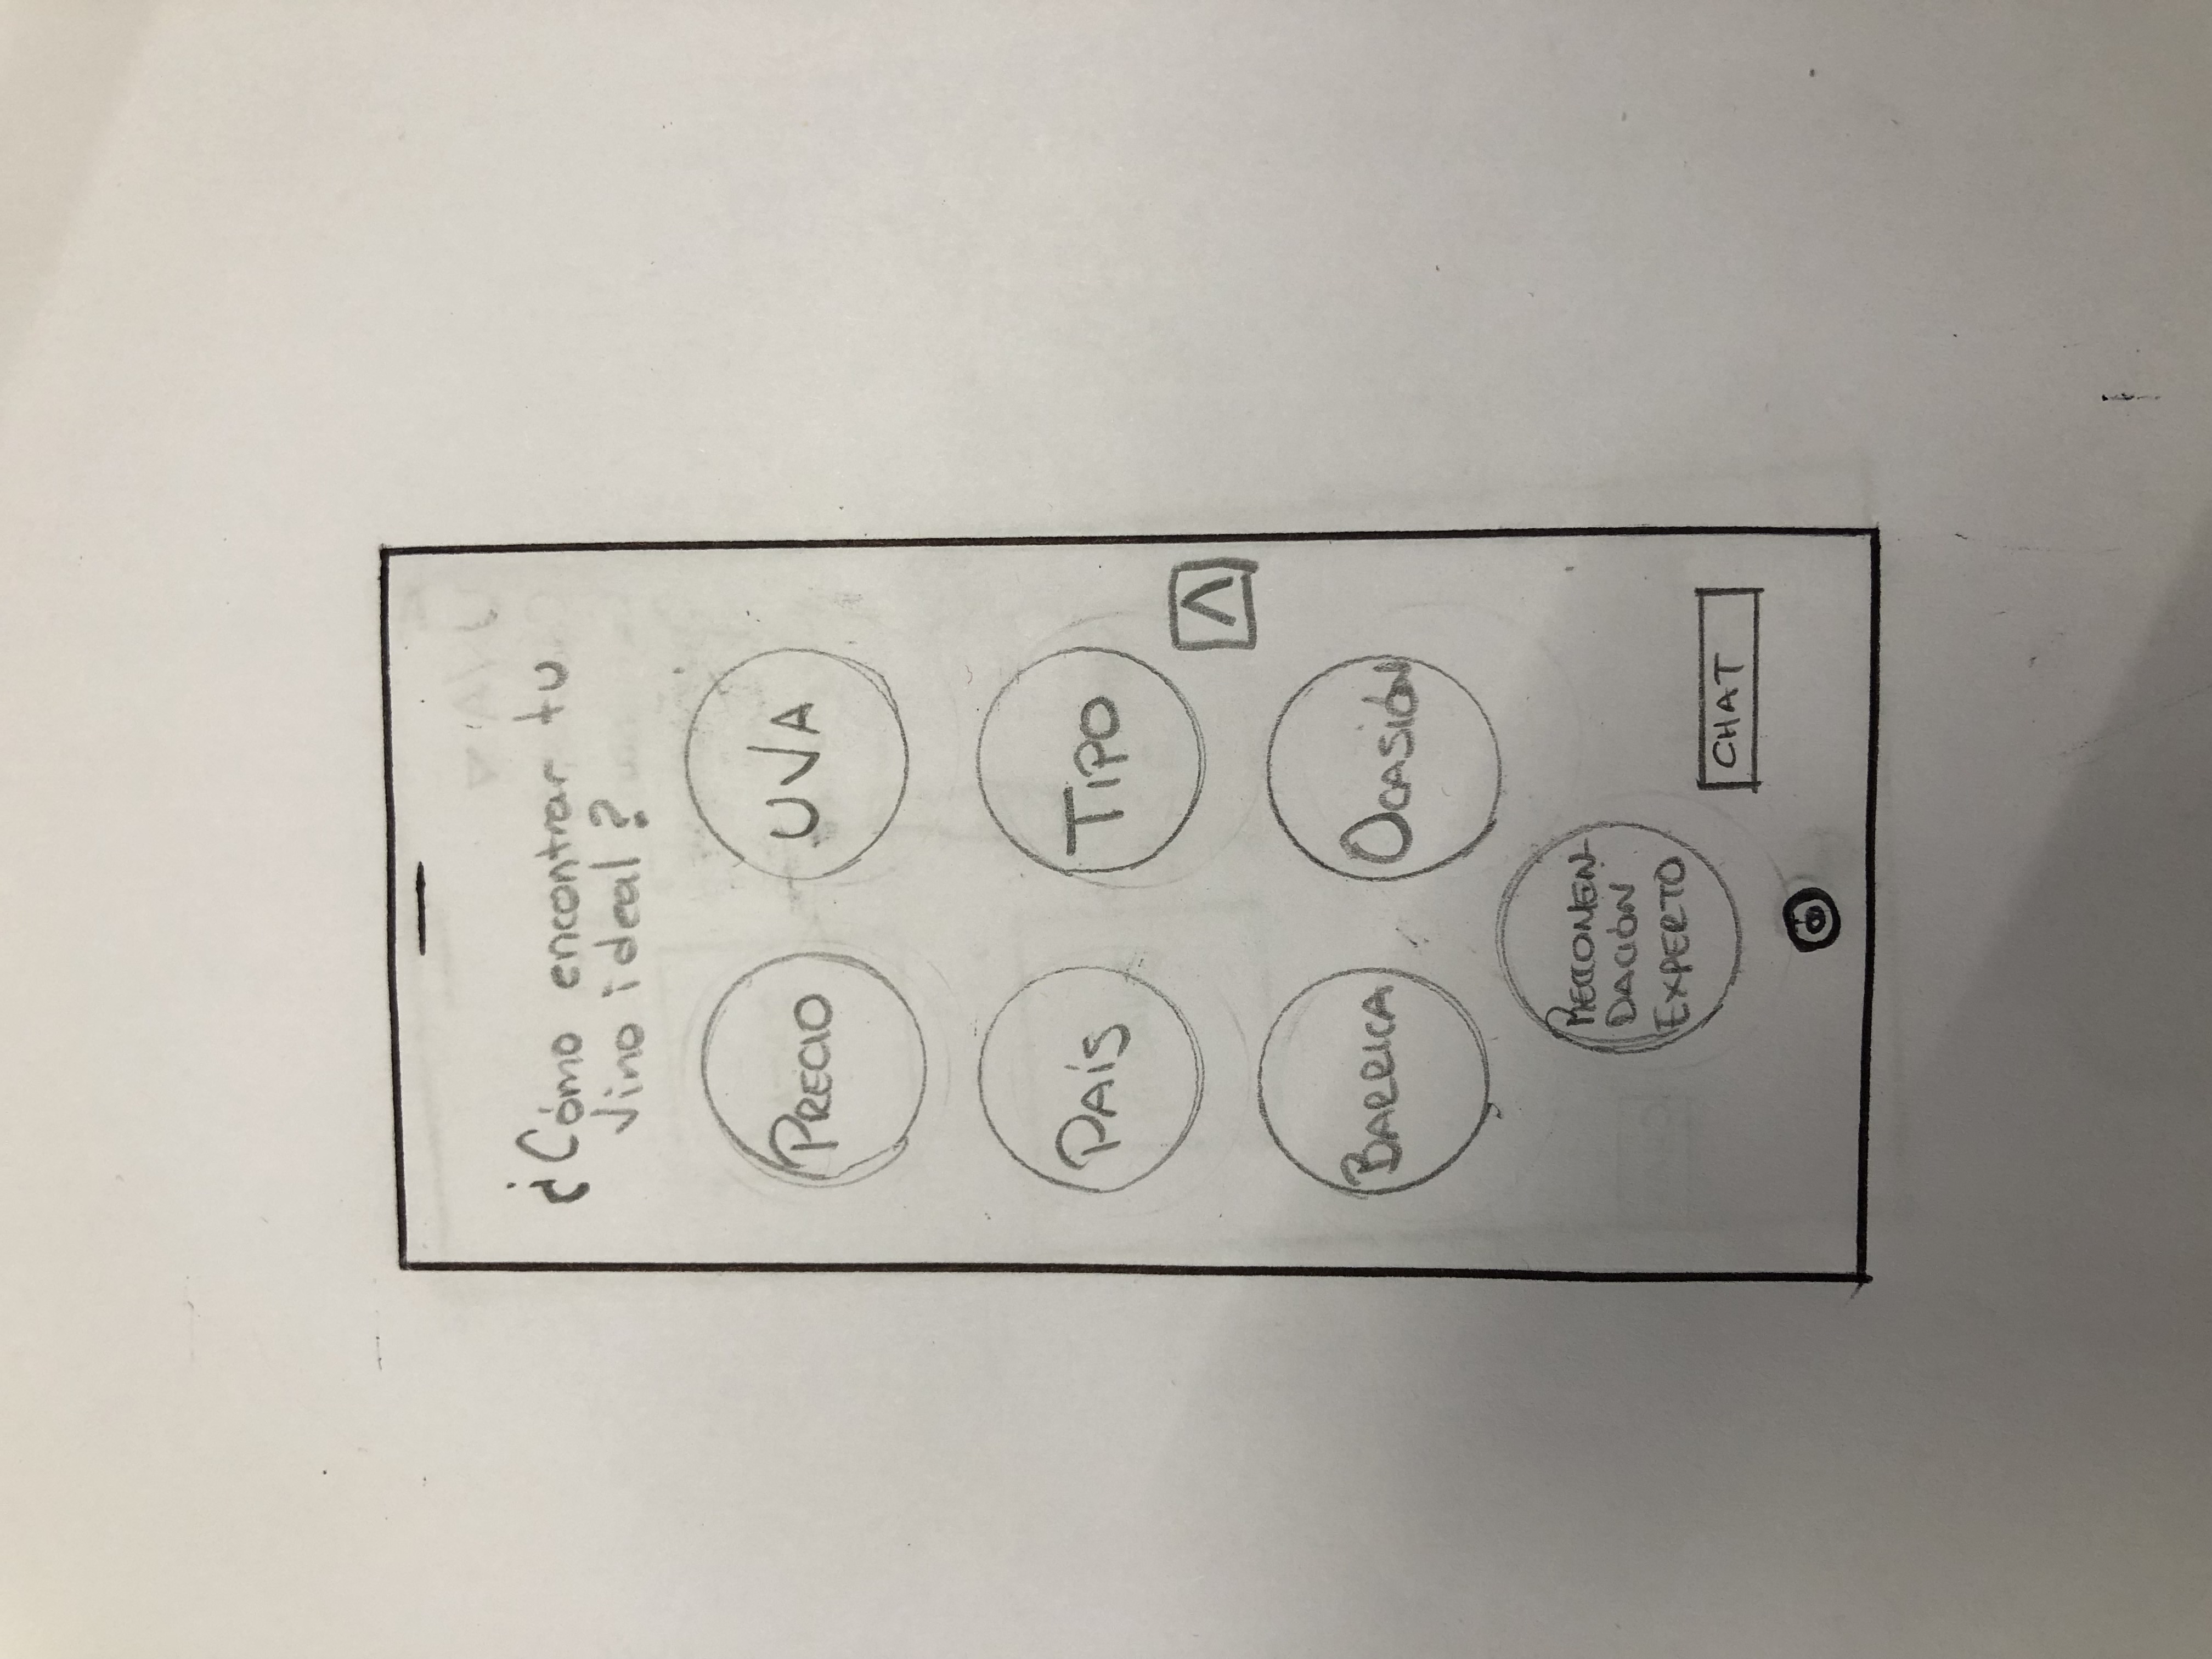 ¿Cómo encontrar tu
vino ideal?
PRECIO
UVA
PAÍS
TIPO
BARRICA
OCASIÓN
RECCOMEN-
DACIÓN
EXPERTO
CHAT